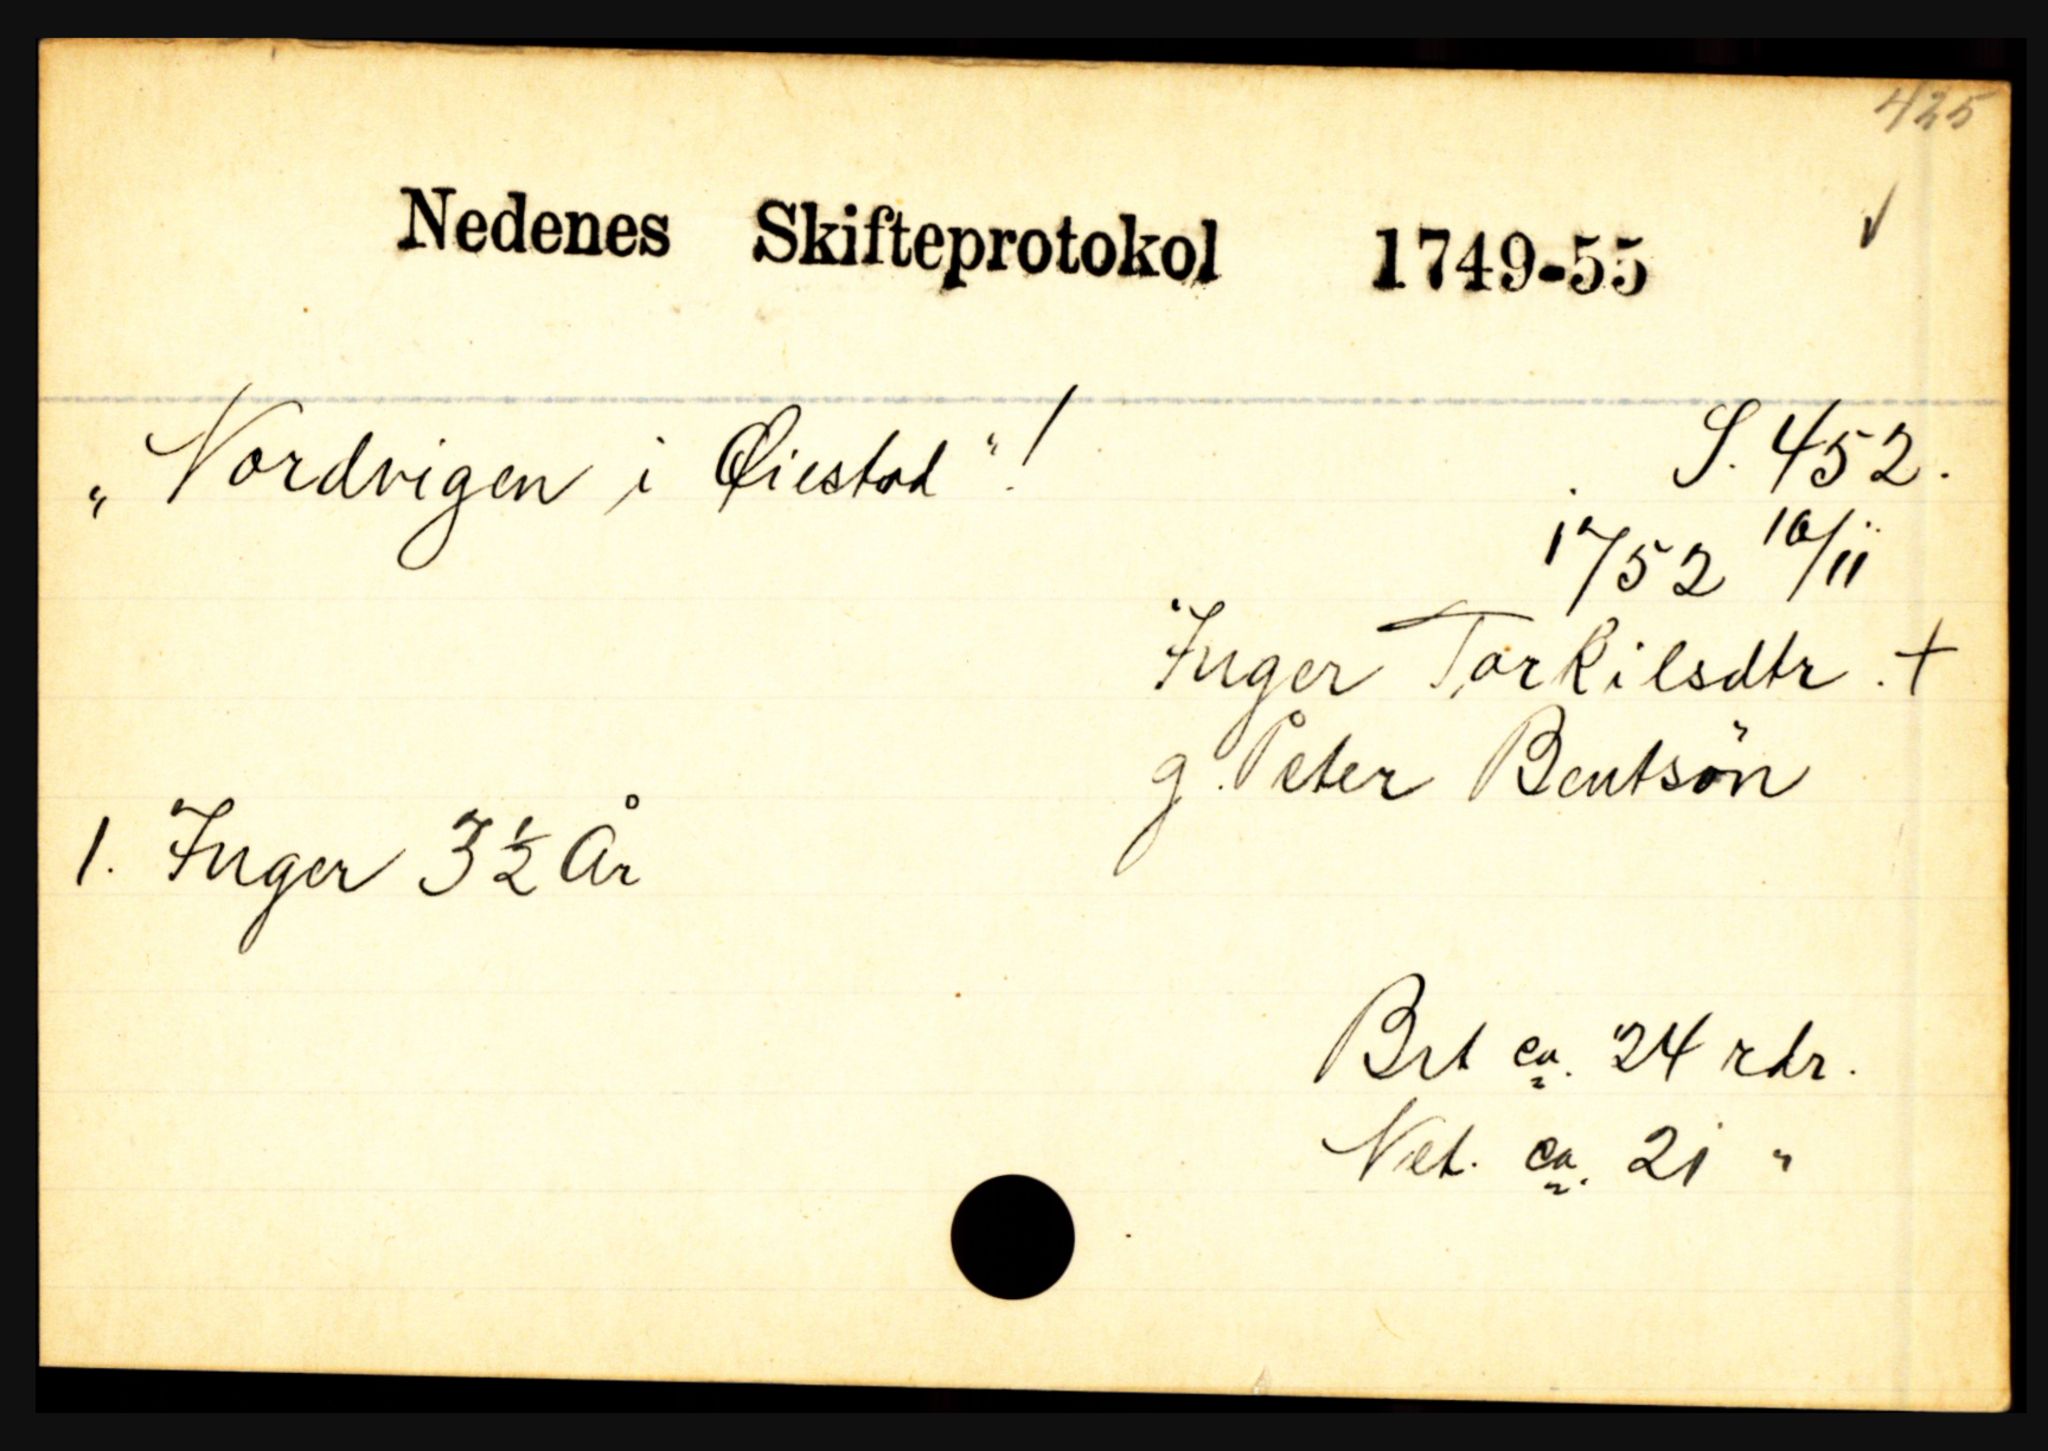 425
Nedenes Skifteprotokol 1749-55
„Nordvigen i Øiestad"!
S. 452.
1752 10/11
Inger Torkilsdtr. +
g. Peter Bentsön
1. Inger 3 1/2 År
Brt ca. 24 rdr.
Net. ca. 21 "